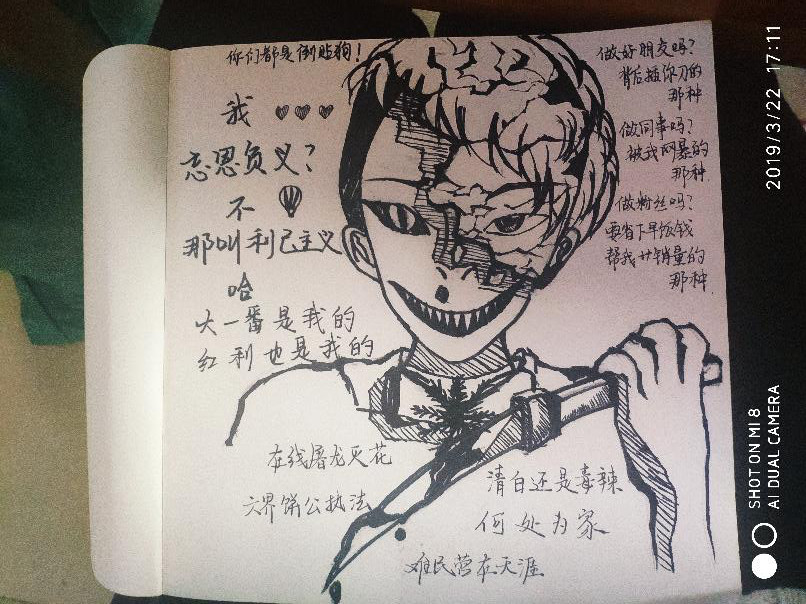 你们都是倒贴狗！
我
忘恩负义？
不
那叫利己主义
哈
火一番是我的
红利也是我的
做好朋友吗？
背后插你刀的
那种
做同事吗？
被我网暴的
那种
做粉丝吗？
要省下早饭钱
帮我廿销量的
那种
在线屠龙灭花
六界饼公执法
清白还是毒辣
何处为家
难民营在天涯
2019/3/22 17:11
SHOT ON MI 8
AI DUAL CAMERA